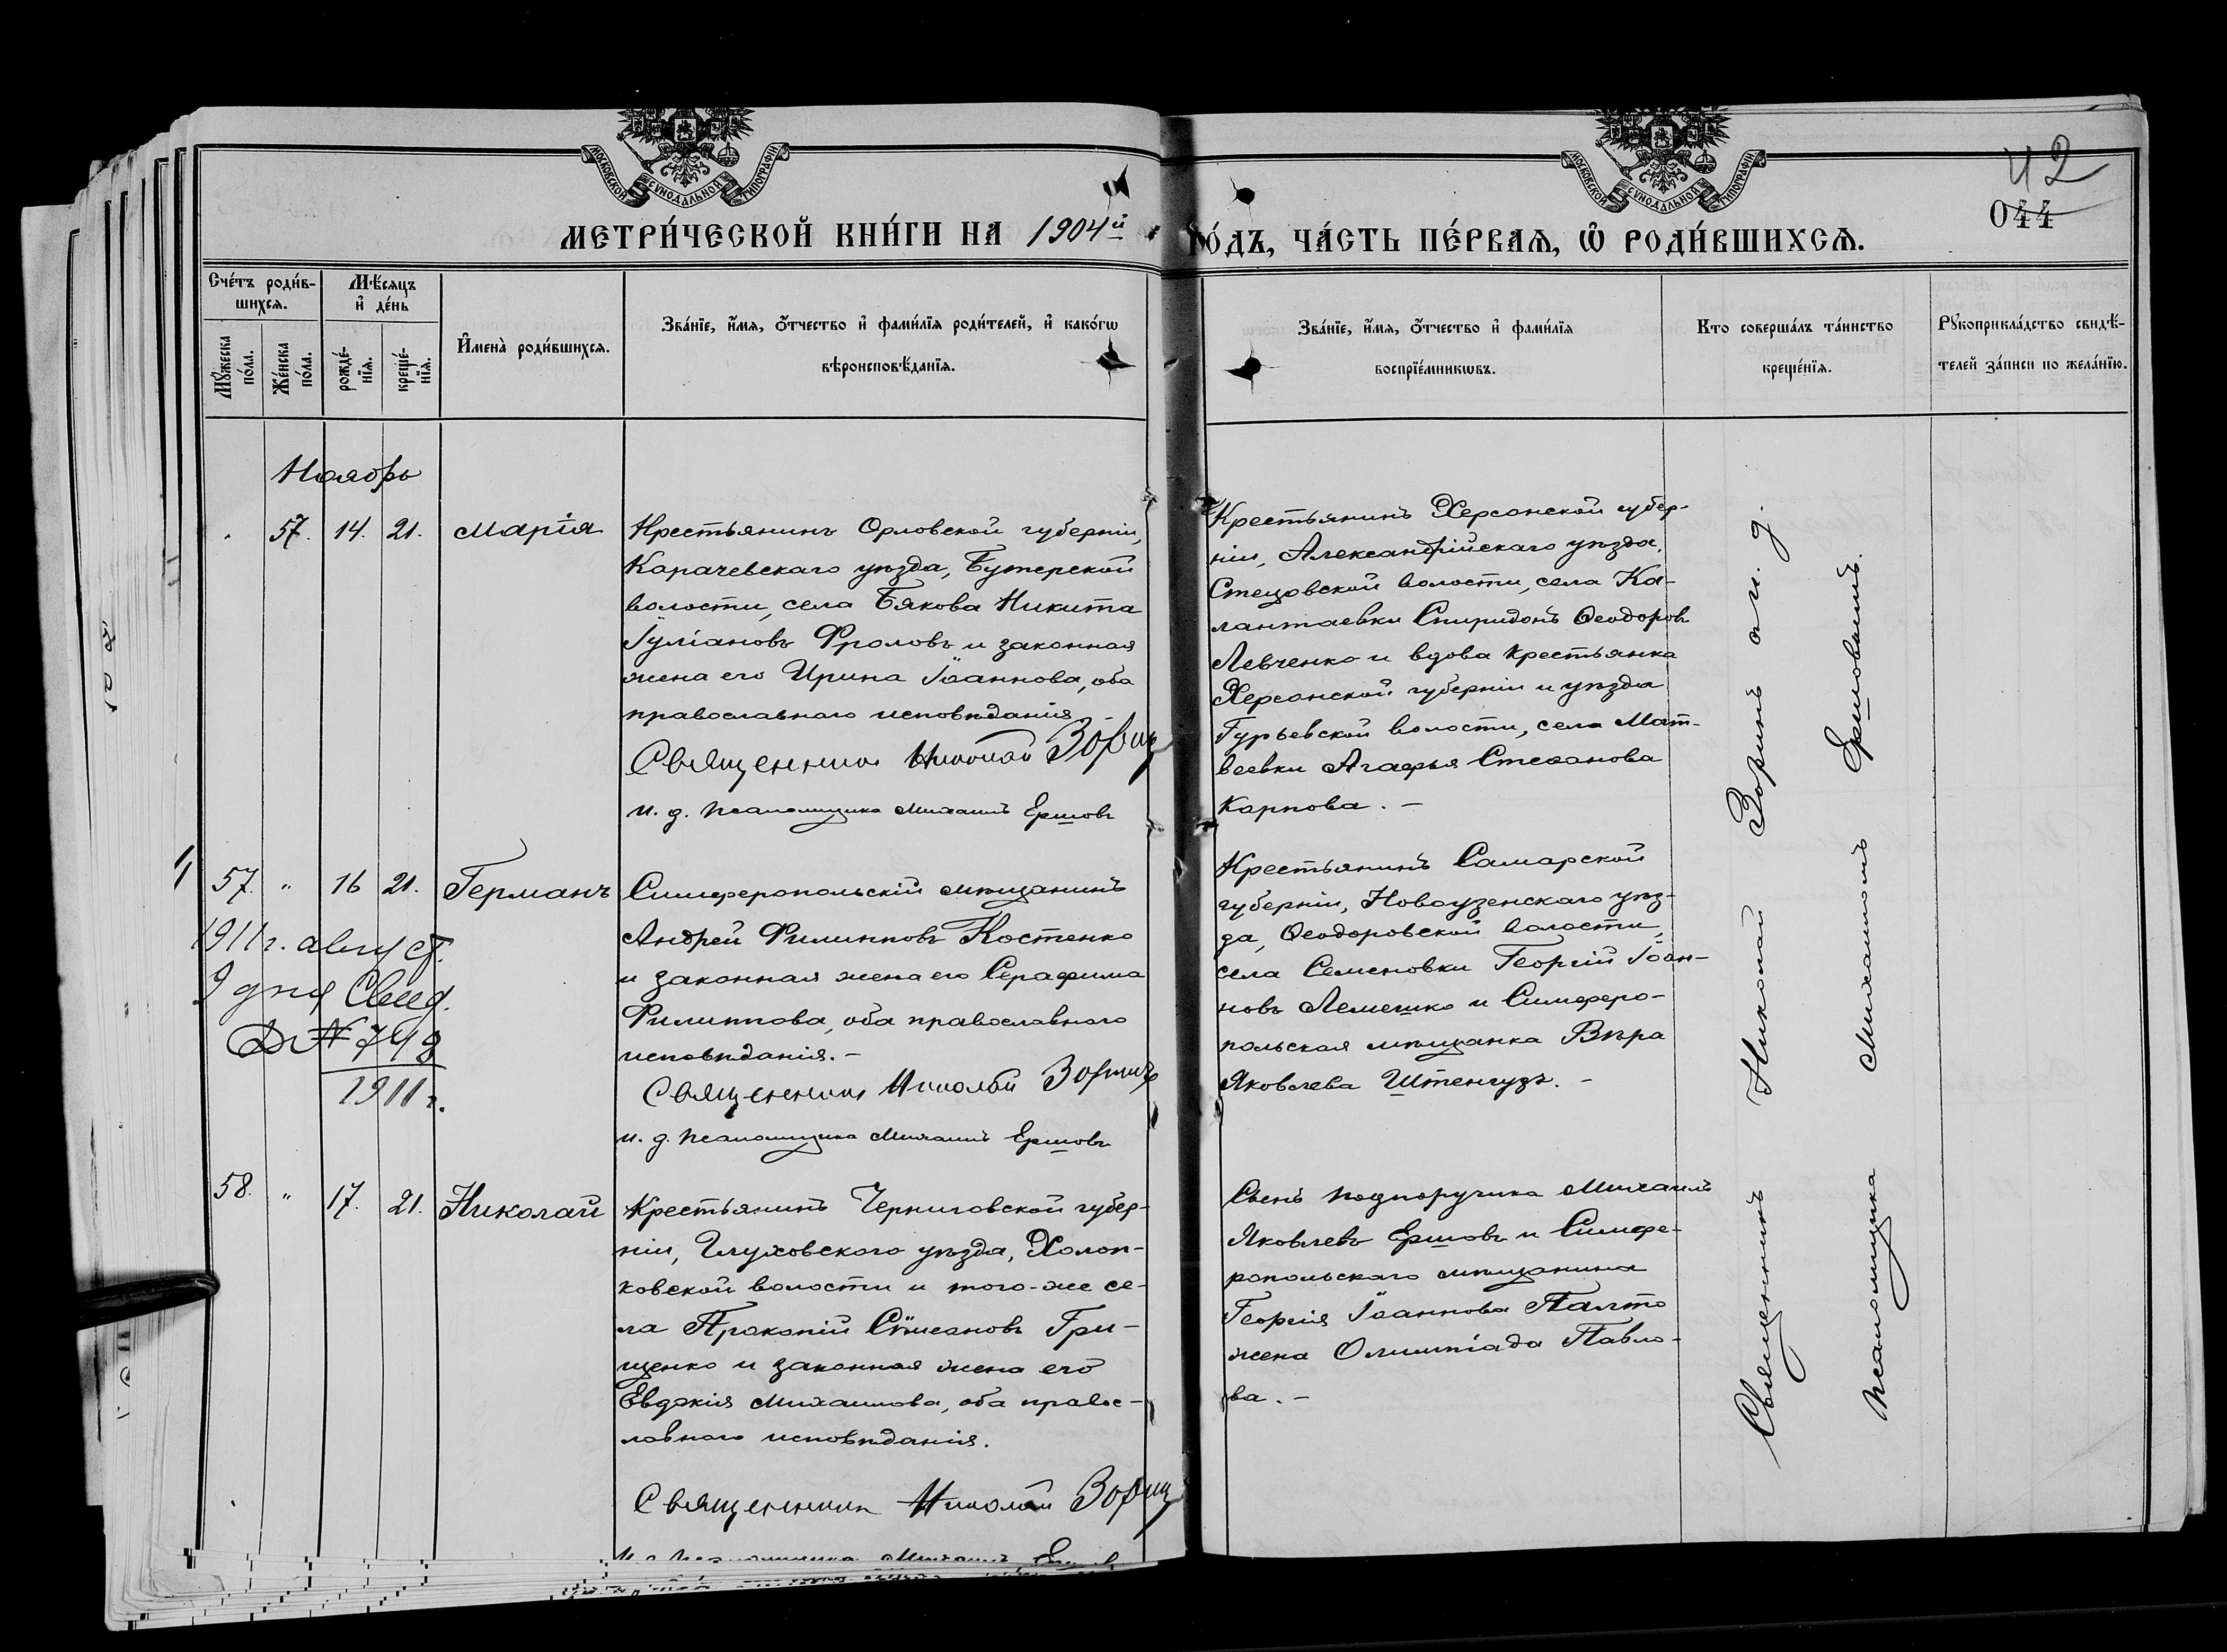 МОСКОВСКОЙ СѴНОДАЛЬНОЙ ТИПОГРАФІИ.
МОСКОВСКОЙ СѴНОДАЛЬНОЙ ТИПОГРАФІИ.
42
044
МЕТРИ́ЧЕСКОЙ КНИ́ГИ НА 1904й ГО́ДЪ, ЧА́СТЬ ПЕ́РВАЯ, Ѡ РОДИ́ВШИХСЯ.
Сче́тъ роди́в-
шихся.
Мѣ́сяцъ
и де́нь
Мꙋжеска
по́ла.
Же́нска
по́ла.
рожде́-
нїя.
креще́-
нїя.
Имена̀ роди́вшихся.
Зва́нїе, и́мя, о́тчество и фами́лїя роди́телей, и како́гѡ
вѣроисповѣ́данїя.
Зва́нїе, и́мя, о́тчество и фами́лїя
воспрїе́мникѡвъ.
Кто соверша́лъ та́инство
креще́нїя.
Рꙋкоприкла́дство свидѣ́-
телей за́писи по жела́нїю.
Ноябрь
57. 14. 21. Марія
Крестьянинъ Орловской губерніи,
Карачевскаго уѣзда, Бутерской
волости, села Бякова Никита
Іуліановъ Фроловъ и законная
жена его Ирина Іоаннова, оба
православнаго исповѣданія -
Священникъ Николай Зоринъ
И. д. псаломщика Михаилъ Ершовъ
Крестьянинъ Херсонской губер-
ніи, Александрійскаго уѣзда,
Стецовской волости, села Ка-
лантаевки Спиридонъ Ѳеодоровъ
Левченко и вдова крестьянка
Херсонской губерніи и уѣзда
Гурьевской волости, села Мат-
веевки Агафья Стефанова
Карпова. -
57. " 16 21. Германъ
1911 г. август.
9 дня Свид.
№ 748
1911 г.
Симферопольскій мѣщанинъ
Андрей Филипповъ Костенко
и законная жена его Серафима
Филиппова, оба православнаго
исповѣданія. -
Священникъ Николай Зоринъ
И. д. псаломщика Михаилъ Ершовъ
Крестьянинъ Самарской
губерніи, Новоузенскаго уѣз-
да, Ѳеодоровской волости,
села Семеновки Георгій Іоан-
новъ Лемешко и Симферо-
польская мѣщанка Вѣра
Яковлева Штенгузъ. -
58. " 17. 21. Николай
Крестьянинъ Черниговской губер-
ніи, Глуховскаго уѣзда, Холоп-
ковской волости и того-же се-
ла Прокопій Сѵмеоновъ Гри-
щенко и законная жена его
Евдокія Михаилова, оба правос-
лавнаго исповѣданія.
Священникъ Николай Зоринъ
И. д. псаломщика Михаилъ Ершовъ
Сынъ подпоручика Михаилъ
Яковлевъ Ершовъ и Симфе-
ропольскаго мѣщанина
Георгія Іоаннова Палто
жена Олимпіада Павло-
ва. -
Священникъ Николай Зоринъ и. д.
псаломщика Михаилъ Ершовъ.